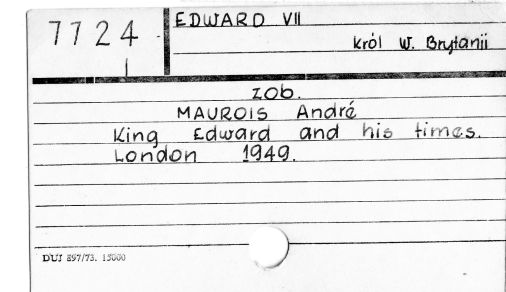 7724
EDWARD VII
król W. Brytanii
zob.
MAUROIS André
King Edward and his times.
London 1949.
DUJ 897/73. 15000